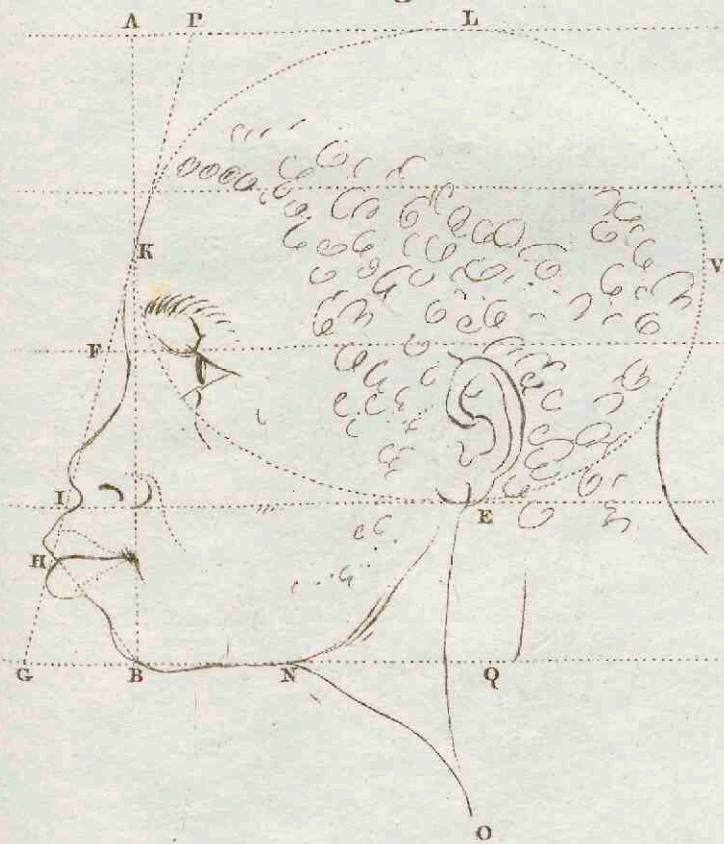 A P L
K
V
F
I
E
H
G B N Q
O